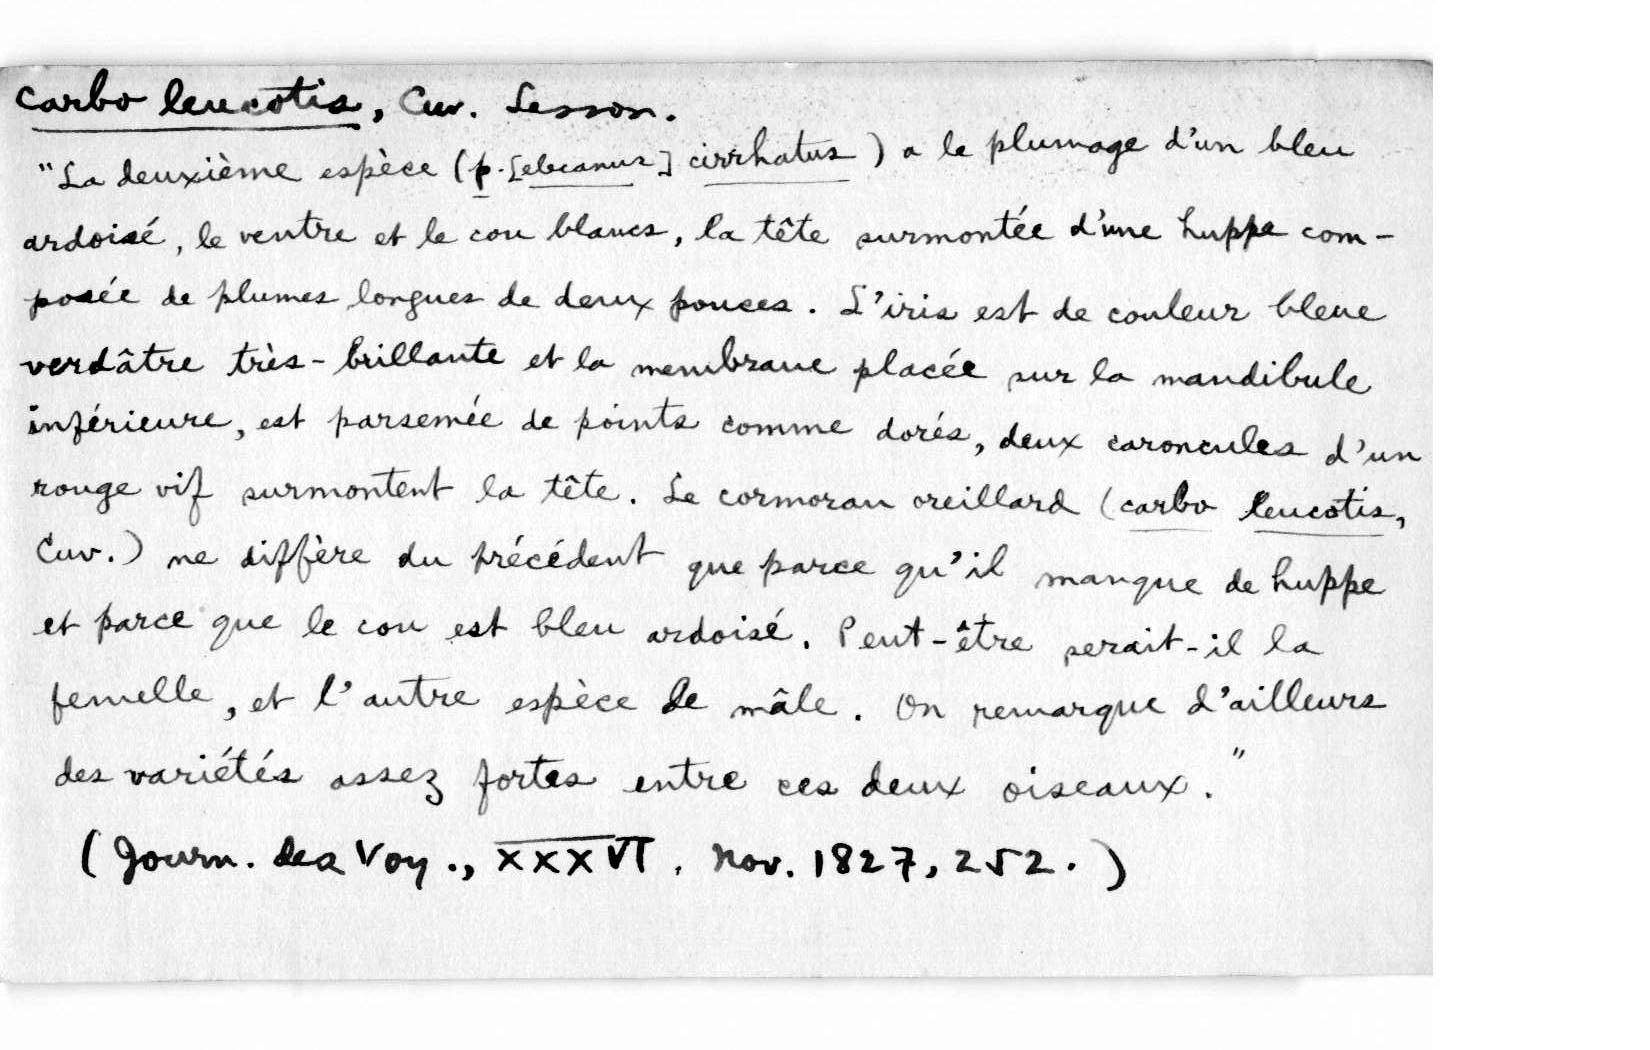 Carbo leucotis, Cuv. Lesson.
"La deuxième espèce (p.[elecanus] cirrhatus) a le plumage d'un bleu
ardoisé, le ventre et le cou blancs, la tête surmontée d'une huppe com-
posée de plumes longues de deux pouces. L'iris est de couleur bleue
verdâtre très-brillante et la membrane placée sur la mandibule
inférieure, est parsemée de points comme dorés, deux caroncules d'un
rouge vif surmontent la tête. Le cormoran oreillard (carbo leucotis,
Cuv.) ne diffère du précédent que parce qu'il manque de huppe
et parce que le cou est bleu ardoisé. Peut-être serait-il la
femelle, et l'autre espèce le mâle. On remarque d'ailleurs
des variétés assez fortes entre ces deux oiseaux."
(Journ. des Voy., XXXVI. Nov. 1827, 252.)